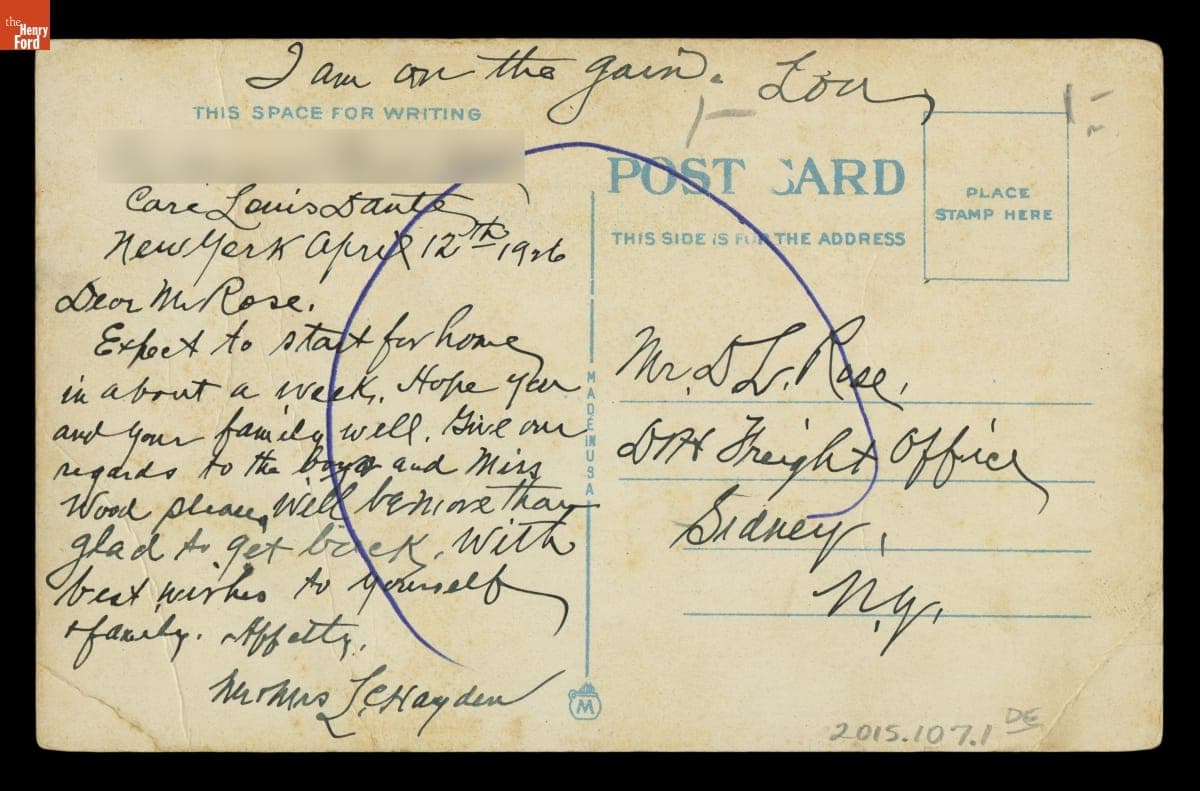 the
Henry
Ford
I am on the gain. Lou
THIS SPACE FOR WRITING
Care Louis Dante
New York April 12th 1926
Dear Mr Rose.
Expect to start for home
in about a week. Hope you
and your family well. Give our
regards to the boys and Miss
Wood please, Will be more than
glad to get back. With
best wishes to yourself
+ family. Affctly.
Mr & Mrs L. C. Hayden
POST CARD
THIS SIDE IS FOR THE ADDRESS
PLACE
STAMP HERE
MADE IN USA
Mr. D L. Rose,
D & H Freight Office
Sidney,
N.Y.
M
2015.107.1 DE